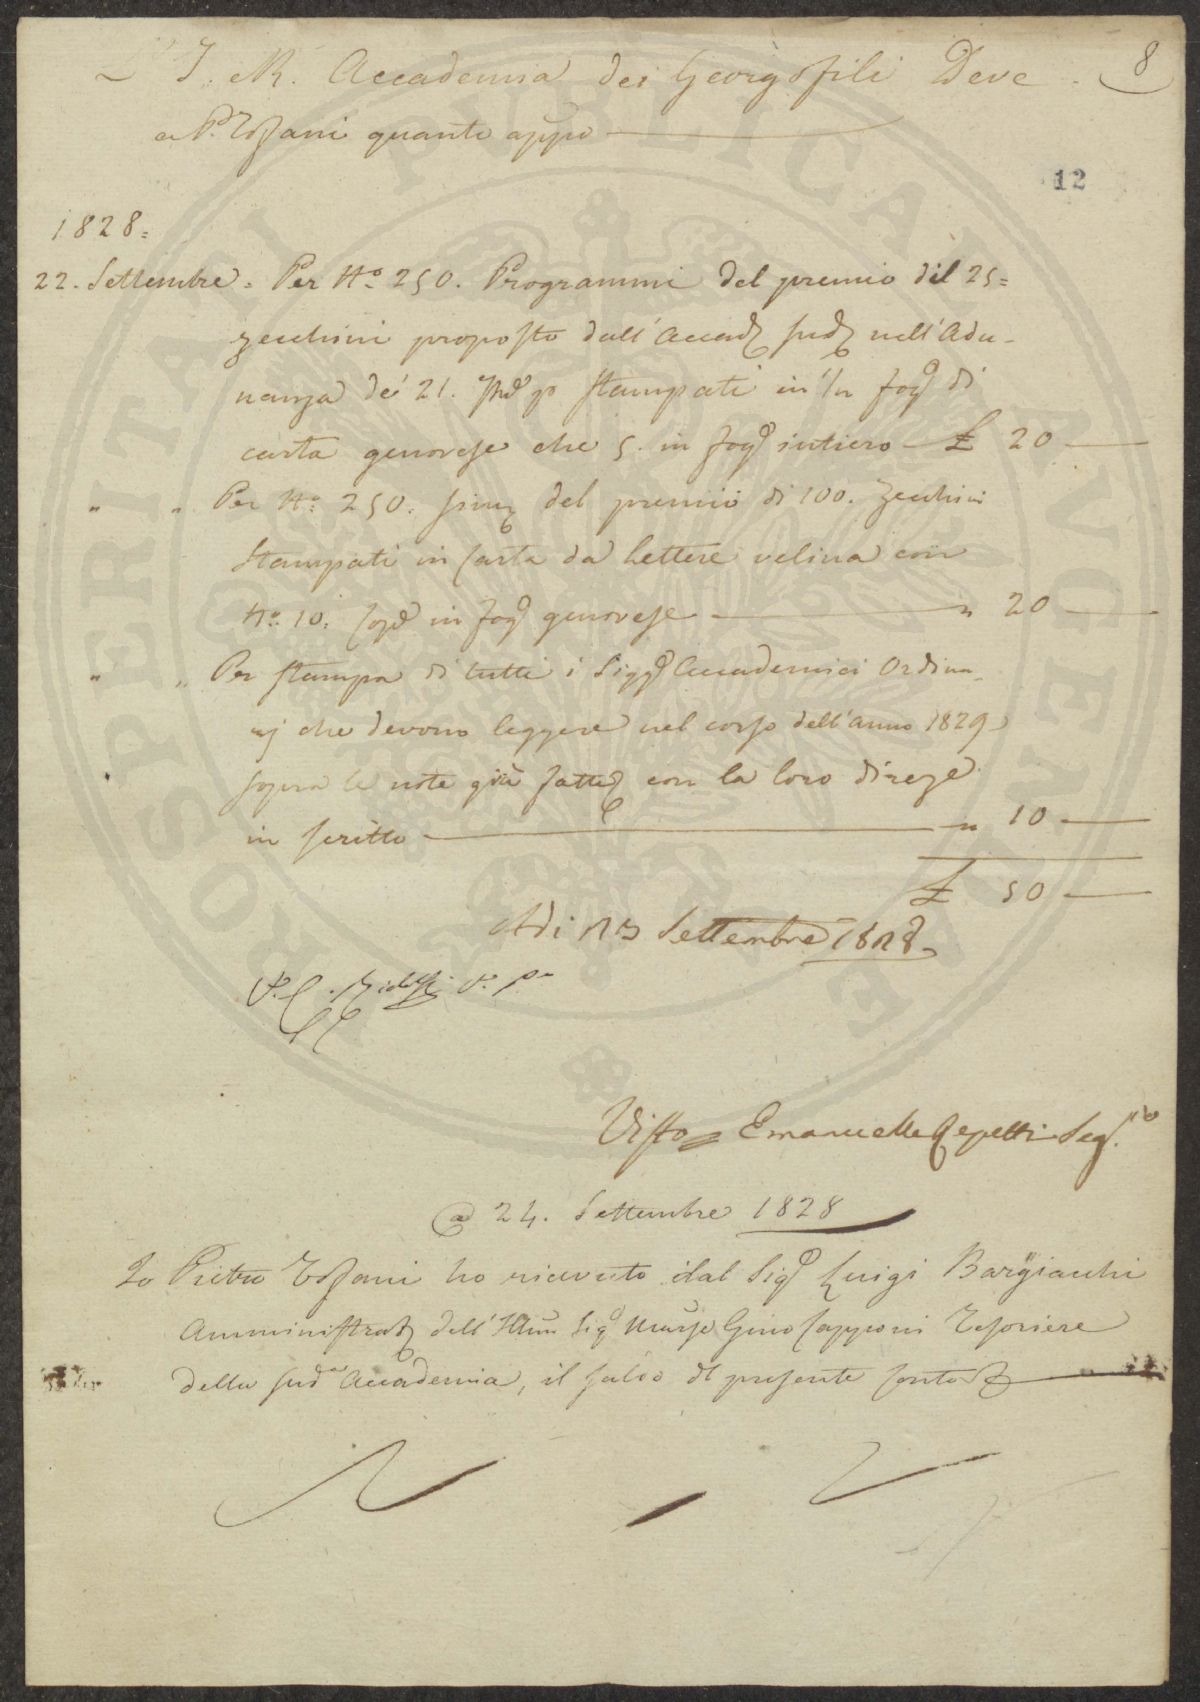 8
L' I. e R. Accademia dei Georgofili Deve
a P. Tofani quanto appo
12
1828=
22. Settembre = Per No. 250. Programmi del premio del 25=
zecchini proposto dall'Accad. sud. nell'Adu-
nanza de' 21. stampati in fog. di
carta genovese che 5. in fog. intiero £ 20
" " Per No. 250. simi del premio di 100. Zecchini
Stampati in Carta da Lettere velina con
No. 10. in fog. genovese " 20
" " Per stampa di tutti i Sigg. Accademici Ordina-
rj che devono leggere nel corso dell'anno 1829
sopra le note già fatte con la loro direze.
in scritto " 10
£ 50
Adi 23 Settembre 1828
V. C. Ridolfi
Visto = Emanuelle Repetti Seg.rio
a 24. Settembre 1828
Io Pietro Tofani ho ricevuto dal Sig. Luigi Bargiacchi
Amministrat. dell'Illmo Sig. Marse Gino Capponi Tesoriere
della sud.a Accademia, il saldo del presente Conto
PROSPERITATI PUBLICAE AUGENDAE